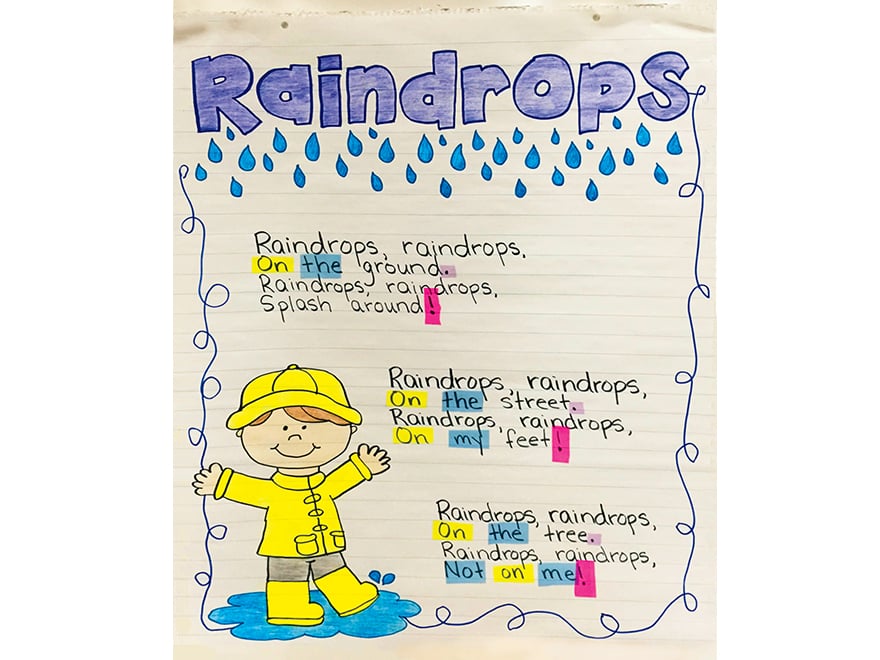 Raindrops
Raindrops, raindrops.
On the ground.
Raindrops, raindrops.
Splash around!
Raindrops, raindrops,
On the street.
Raindrops, raindrops,
On my feet!
Raindrops, raindrops,
On the tree.
Raindrops, raindrops,
Not on me!